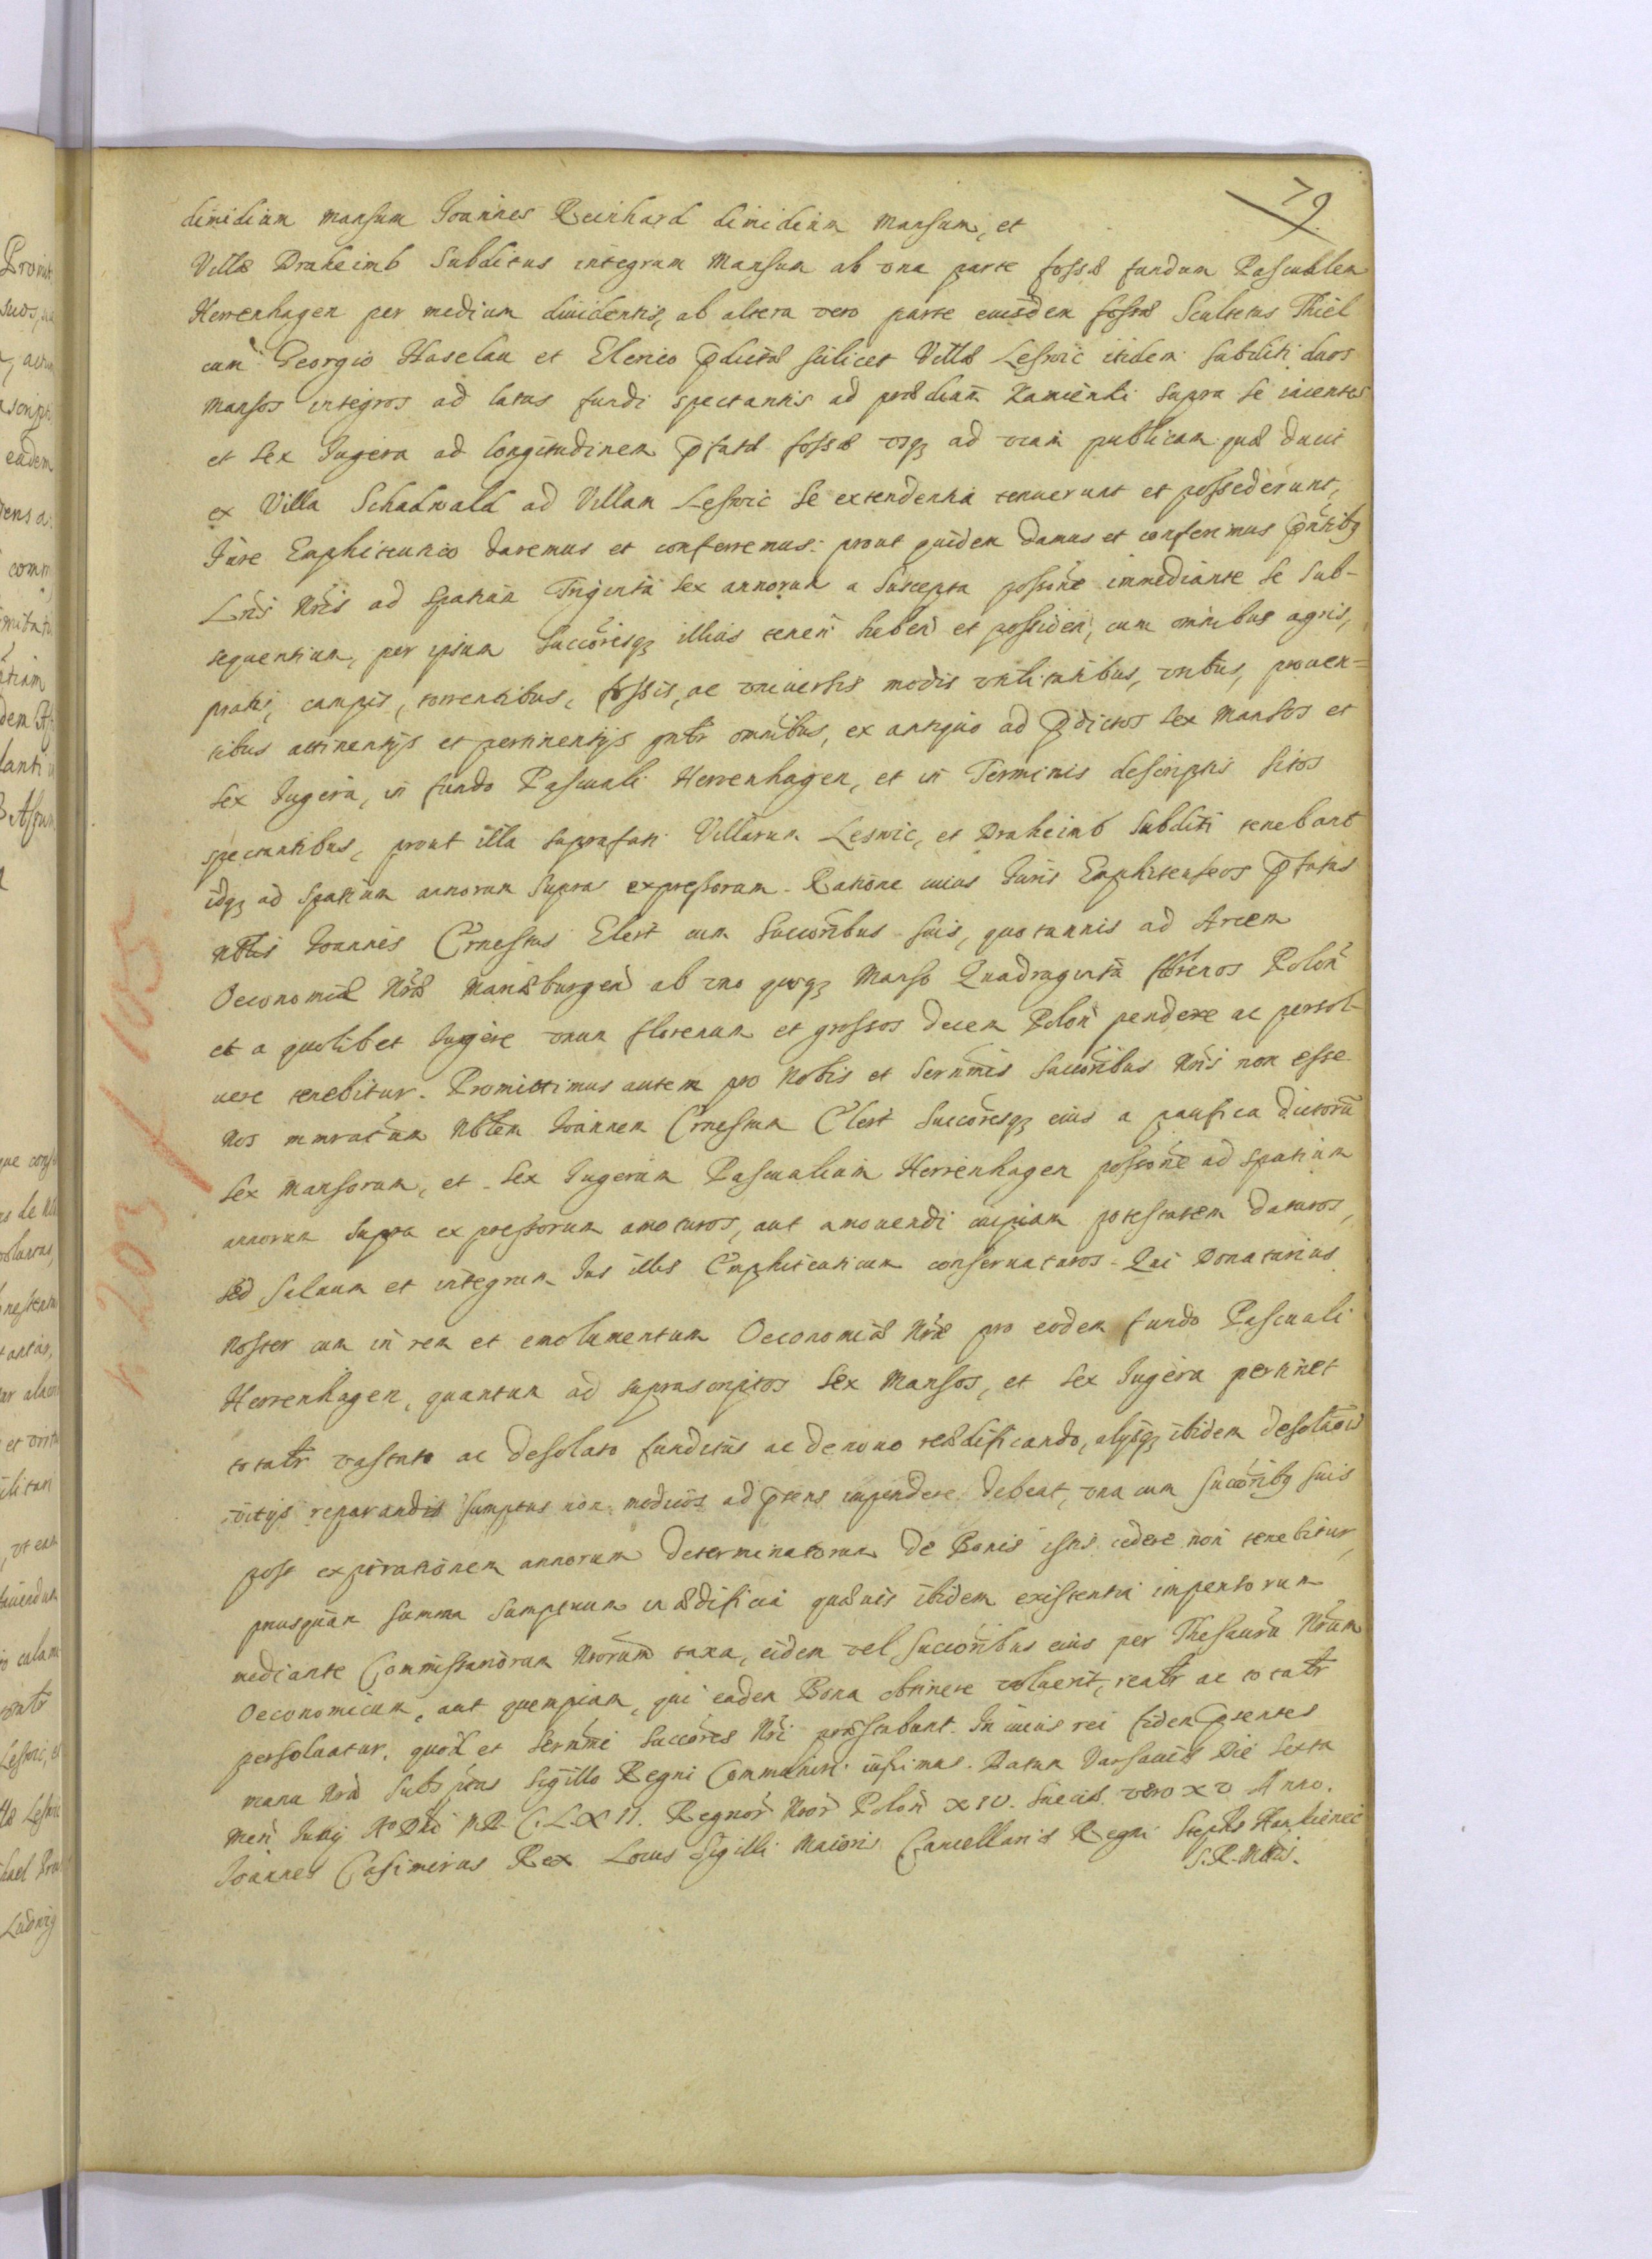 79
dimidium mansum Joannes Reinhard dimidium Mansum, et
Villæ Draheimb Subditus integrum Mansum ab vna parte fossæ fundum Pascualem
Herrenhagen per medium diuidentis, ab altera vero parte eiusdem fossæ Scultetus Thiel
cum Georgio Haselau et Elerico p̄dictæ scilicet Villæ Leswic itidem subditi duos
Mansos integros ad latus fundi spectantis ad prædium Kamienki supra se iacentes
et Sex Jugera ad longitudinem p̄fatæ fossæ vsq; ad viam publicam quæ ducit
ex Villa Schadwald ad Villam Leswic se extendentia tenuerunt et possederunt,
Jure Emphiteutico daremus et conferremus: prout quidem damus et conferimus p̄ntibq
Lrīs Nrīs ad spatium Triginta sex annorum a suscepta possōne immediante se sub-
sequentium, per ipsum Succōresq; illius teneñ habeñ et possideñ, cum omnibus agris,
pratis, campis, torrentibus, fossis, ac vniuersis modis vtilitatibus, vsibus, prouen=
tibus attinentijs et pertinentijs gn̄lr omnibus, ex antiquo ad p̄dictos sex Mansos et
Sex Jugera, in fundo Pascuali Herrenhagen, et in Terminis descriptis sitos
spectantibus, prout illa suprafati Villarum Leswic, et Draheimb Subditi tenebant
idq; ad spatium annorum supra expressorum. Ratione cuius Juris Emphiteuseos p̄fatus
Nblis Joannes Ernestus Elert cum Succōribus suis, quotannis ad Arcem
Oeconomiæ Nræ Mariæburgeñ ab vno quoq; Manso Quadraginta florenos Poloñ
et a quolibet Jugere vnum florenum et grossos decem Poloñ pendere ac persol-
uere tenebitur. Promittimus autem pro Nobis et Sernmis Succōribus Nrīs non esse
Nos mmratum Nblem Joannem Ernestum Elert Succōresq; eius a pacifica dictorū
Sex Mansorum, et Sex Jugerum Pascualium Herrenhagen possōne ad spatium
annorum supra expressorum amoturos, aut amouendi cuipiam potestatem daturos,
sed saluum et integrum Jus illis Emphiteuticum conseruaturos. Qui Donatarius
Noster cum in rem et emolumentum Oeconomiæ Nræ pro eodem fundo Pascuali
Herrenhagen, quantum ad suprascriptos Sex Mansos, et Sex Jugera pertinet
totalr vastato ac desolato funditus ac de nouo reædificando, alijsq; ibidem desolaōis
vitijs reparandis sumptus non modicos ad p̄sens impendere debeat, vna cum succōribq suis
post expirationem annorum determinatorum de Bonis istis cedere non tenebitur,
priusquam summa sumptuum in ædificia quæuis ibidem existentia impensorum
mediante Commissariorum Nrorum taxa, eidem vel Succōribus eius per Thesaurū Nrum
Oeconomicum, aut quempiam, qui eadem Bona obtinere voluerit, realr ac totalr
persoluatur. quod et Sernmi Succōres Nri præstabunt. In cuius rei fidem p̄sentes
manu Nra subsptas Sigillo Regni Communiri iussimus. Datum Varsauiæ Die Sexta
Meñ Julij Aº Dñi M.D.C.L.X II. Regnor Nror Poloñ XIV. Sueciæ vero XV Anno.
Joannes Casimirus Rex Locus Sigilli Maioris Cancellariæ Regni Stephs Hankiewic
S. R. Mttis.
k 203 / 105.